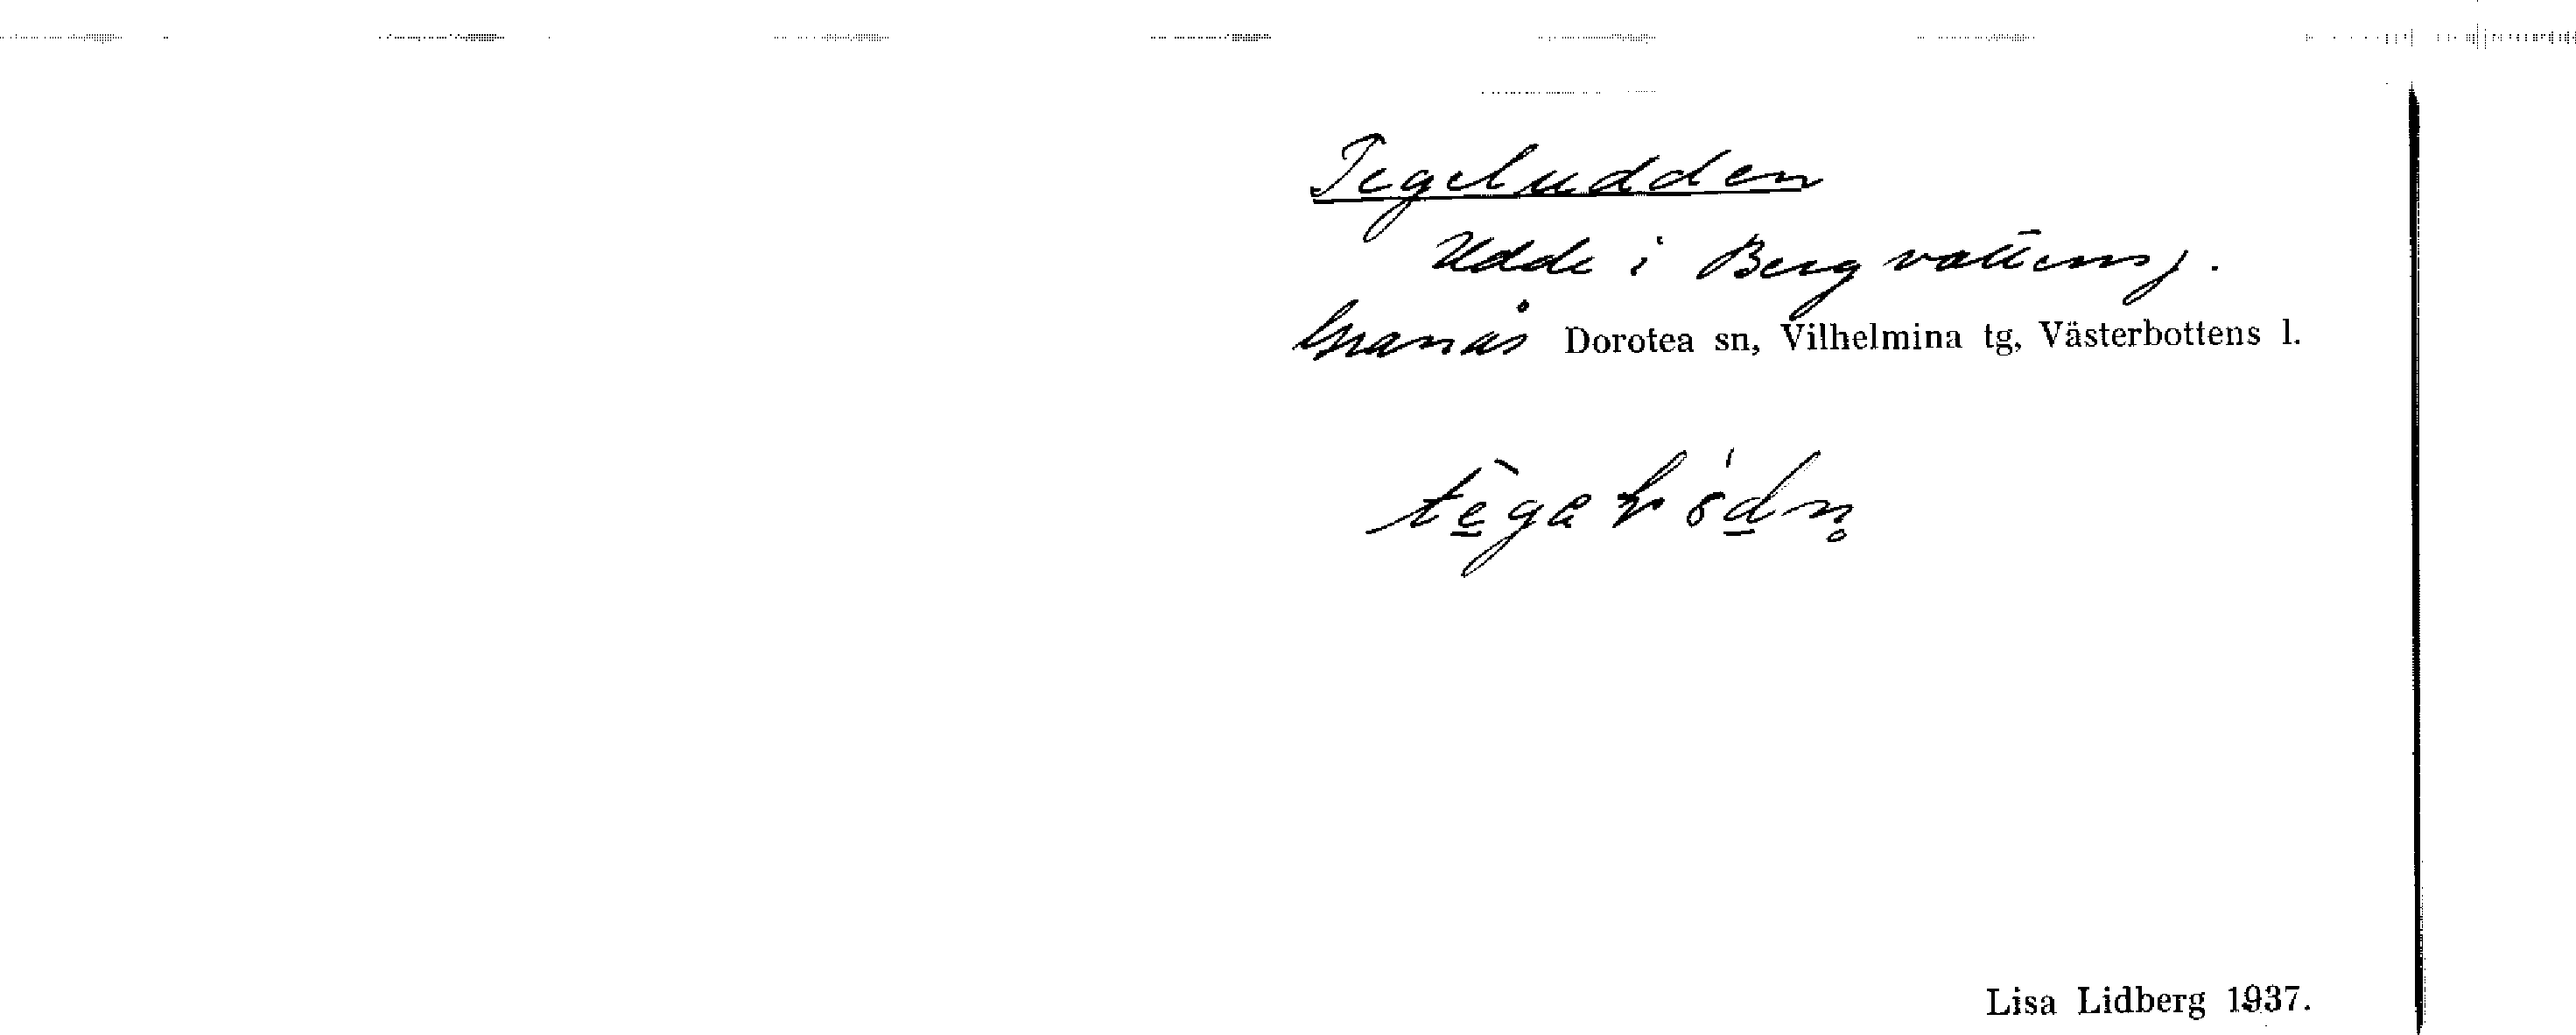 Tegeludden
Udde i Bergvattensj.
Granås Dorotea sn, Vilhelmina tg, Västerbottens l.
Lisa Lidberg 1937.